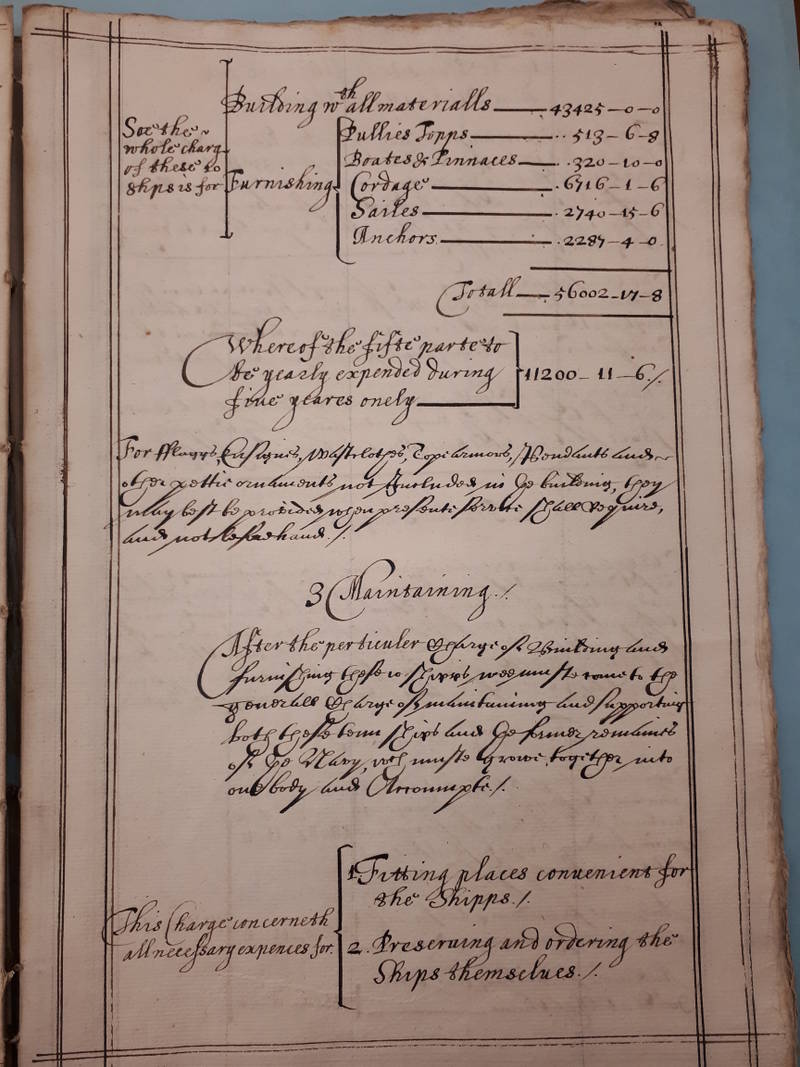 Building wth all materialls — 43425-0-0
Soe the
whole charg
of these 10
ships is for
Furnishing
Pullies Topps — 513-6-8
Boates & Pinnaces — 320-10-0
Cordage — 6716-1-6
Sailes — 2740-15-6
Anchors — 2287-4-0
Totall — 56002-17-8
Whereof the fifte parte to
be yearly expended during
fiue yeares onely — 11200-11-6./.
For fflaggs, Ensignes, Wastclothes, Topearmors, Pendants and
other pettie ornaments not Included in ye building, they
may best be provided when presente servite shall require,
and not beforehand./.
3 Maintaining./.
After the perticuler Charge of Building and
furnishing these 10 shipps wee muste come to the
generall Charge of maintaining and supporting
both these tenn ships and ye former remaines
of ye Navy, wch muste growe together into
one body and Accoumpte./.
This Charge concerneth
all necessary expences for
1. Fitting places conuenient for
the Shipps./.
2. Preseruing and ordering the
Ships themselues./.